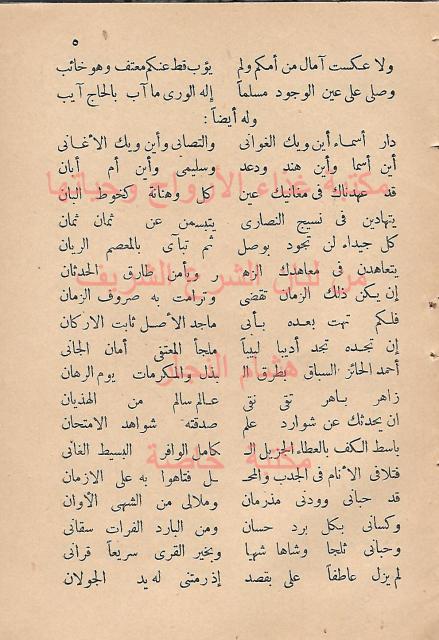 ٥
ولا عكست آمال من أمكم ولم يؤب قط عنكم معتف وهو خائب
وصلى على عين الوجود مسلماً إله الورى ما آب بالحاج آيب
وله أيضاً :
دار أسماء أين ويك الغوانى والتصابى وأين ويك الأغانى
أين أسما وأين هند ودعد وسليمى وأين أم أبان
قد عهدناك فى مغانيك عين كل وهنانة كخوط البان
يتهادين فى نسيج النصارى يتبسمن عن ثمان ثمان
كل جيداء لن تجود بوصل ثم تبآى بالمعصم الريان
يتعاهدن فى معاهدك الزهـ ويأمن طارق الحدثان
إن يكن ذلك الزمان تقضى وترامت به صروف الزمان
فلكم تهت بعده بأبى ماجد الأصل ثابت الاركان
إن تجده تجد أديبا لبيباً ملجأ المعتفى أمان الجانى
أحمد الحائز السباق بطرق الـ بذل والمكرمات يوم الرهان
زاهر باهر تقى نقى عالم سالم من الهذيان
ان يحدثك عن شوارد علم صدقته شواهد الامتحان
باسط الكف بالعطاء الجزيل الـ كامل الوافر البسيط الغانى
فتلافى الأنام فى الجدب والمحـ ل فتاهوا به على الازمان
قد حبانى وودنى مذرمان وملالى من الشهى الأوان
وكسانى بكل برد حسان ومن البارد الفرات سقانى
وحبانى ثلجا وشاها شهيا وبخير القرى سريعاً قرانى
لم يزل عاطفاً على بقصد إذ رمتنى له يد الجولان
مكتبة غذاء الأرواح وحياتها
من لبان الشرع الشريف
هشام النجار
مكتبة خاصة